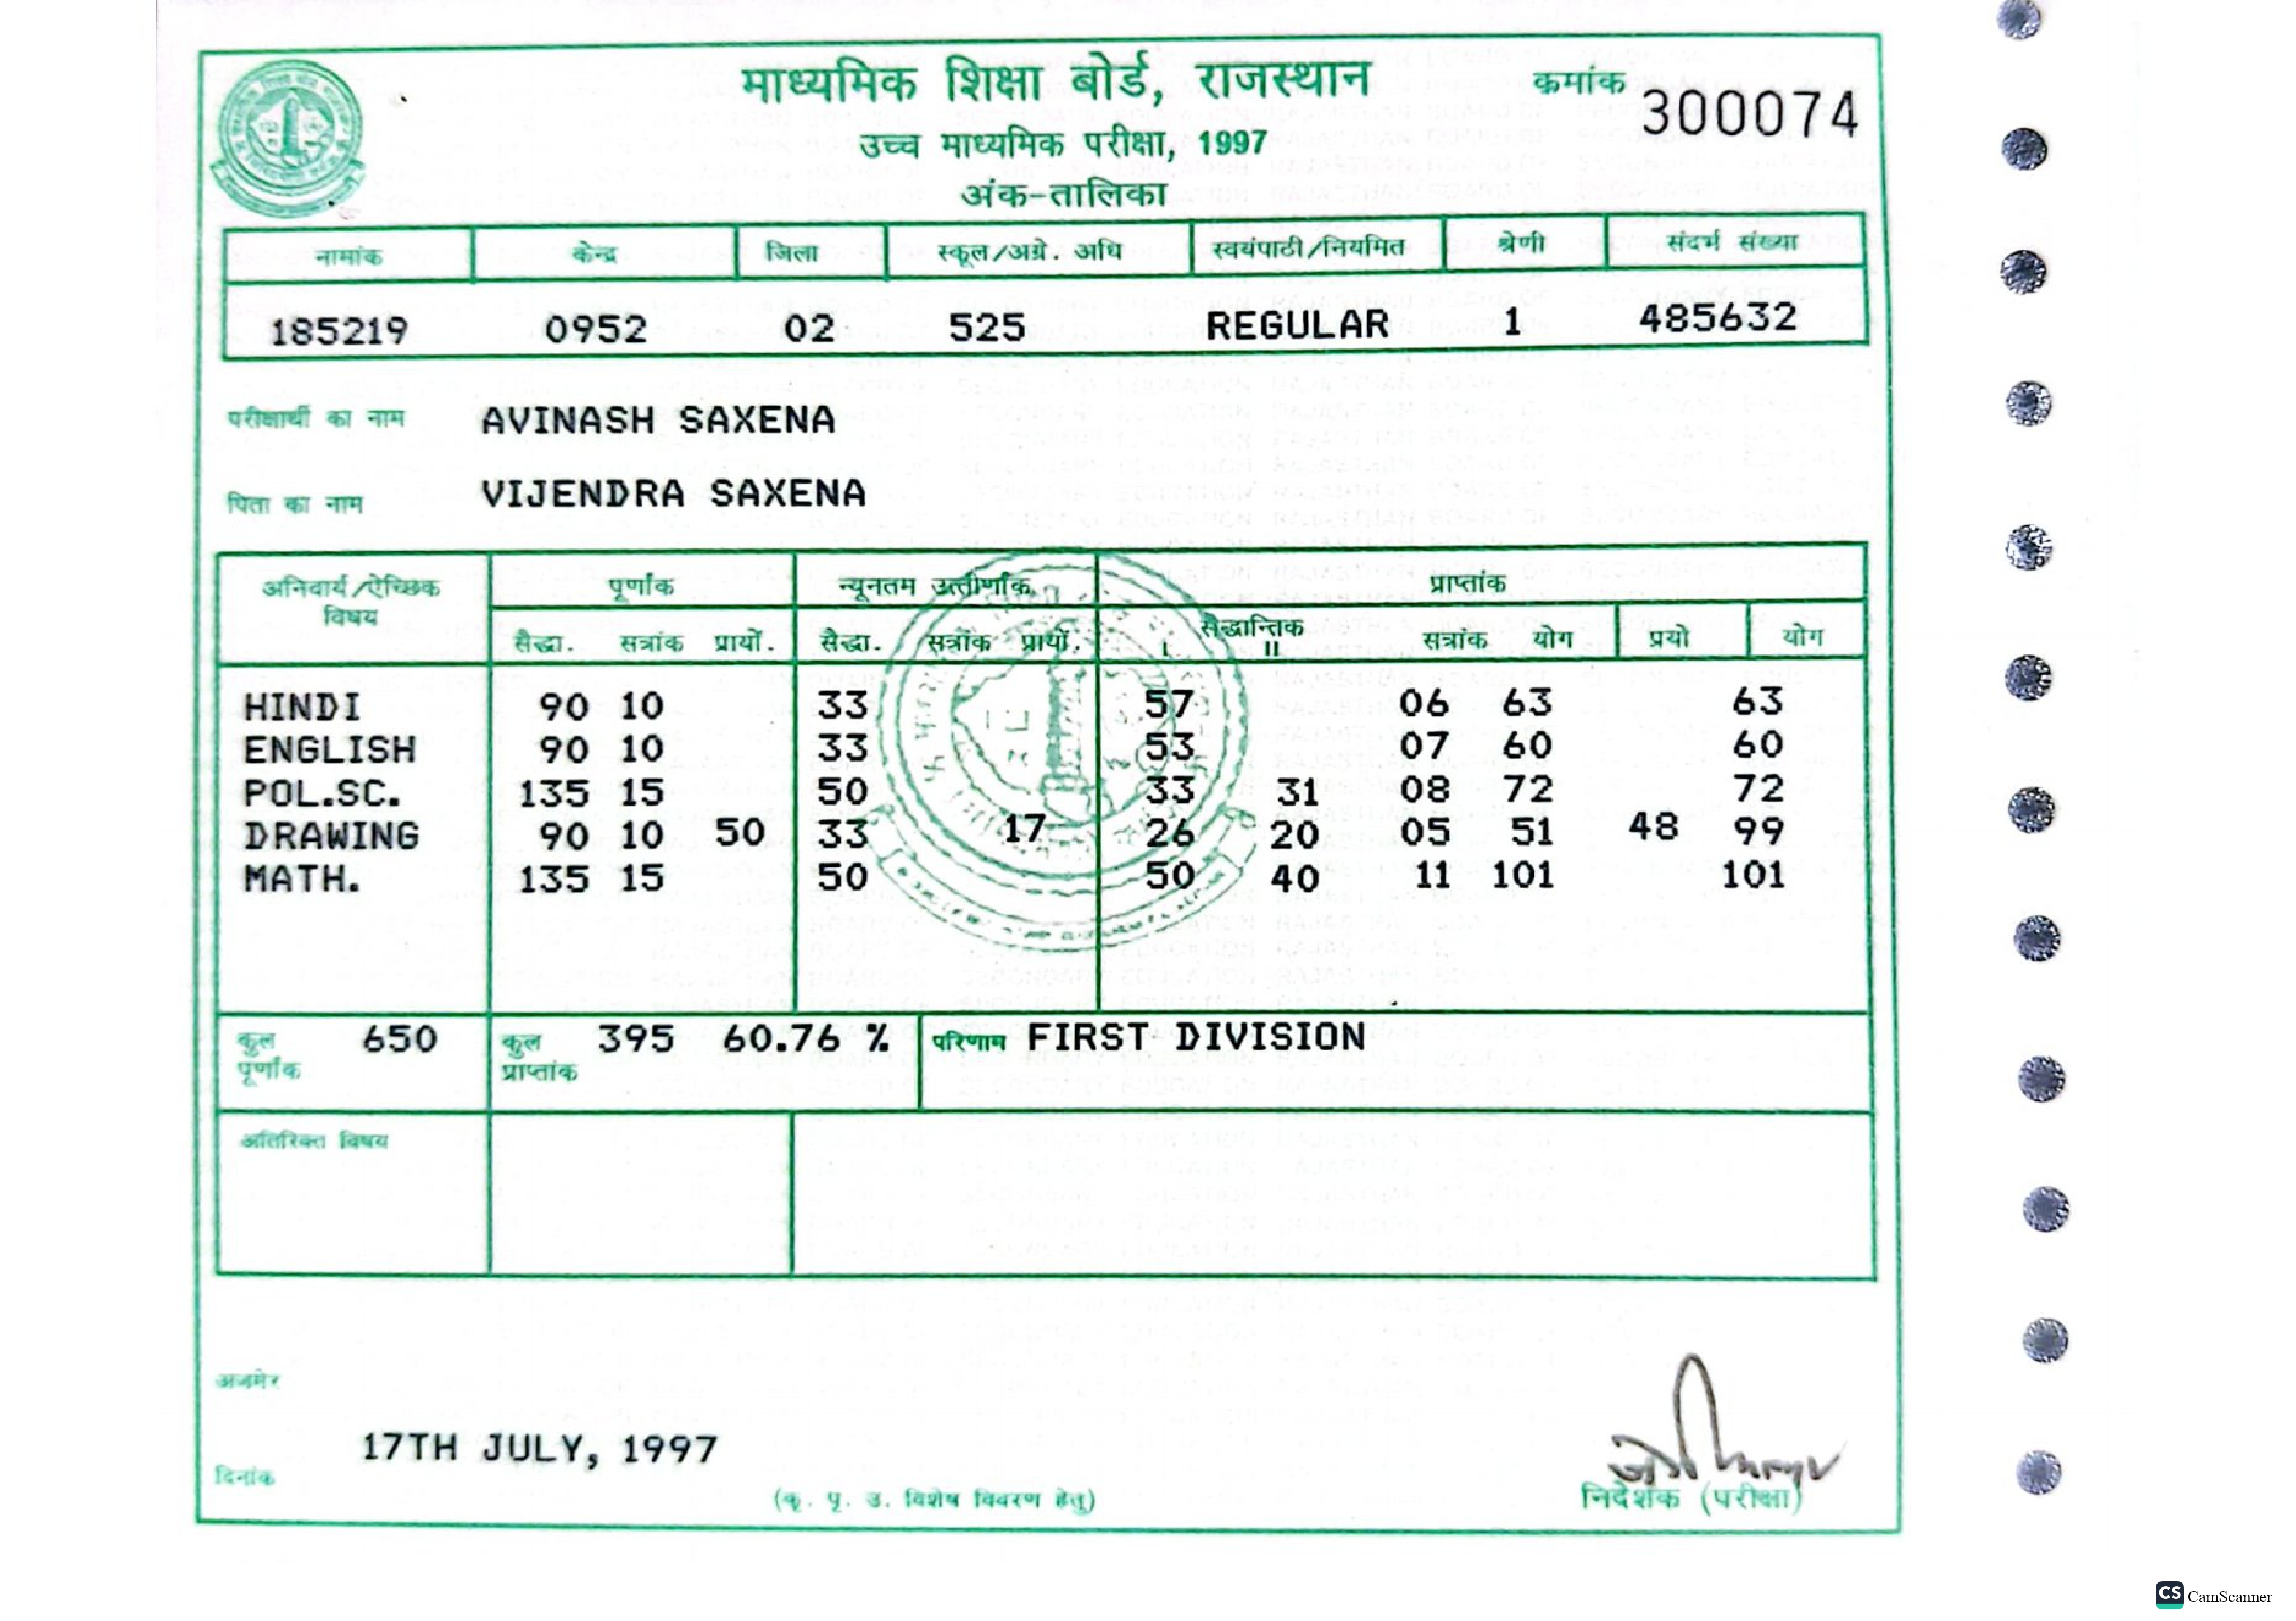 माध्यमिक शिक्षा बोर्ड, राजस्थान
क्रमांक 300074
उच्च माध्यमिक परीक्षा, 1997
अंक-तालिका
नामांक केन्द्र जिला स्कूल/अग्रे. अधि स्वयंपाठी/नियमित श्रेणी संदर्भ संख्या
185219 0952 02 525 REGULAR 1 485632
परीक्षार्थी का नाम AVINASH SAXENA
पिता का नाम VIJENDRA SAXENA
अनिवार्य/ऐच्छिक विषय पूर्णांक न्यूनतम उत्तीर्णांक प्राप्तांक
सैद्धा. सत्रांक प्रायों. सैद्धा. सत्रांक प्रायों. सैद्धान्तिक I II सत्रांक योग प्रयो योग
HINDI 90 10 33 57 06 63 63
ENGLISH 90 10 33 53 07 60 60
POL.SC. 135 15 50 33 31 08 72 72
DRAWING 90 10 50 33 17 26 20 05 51 48 99
MATH. 135 15 50 50 40 11 101 101
कुल पूर्णांक 650 कुल प्राप्तांक 395 60.76 % परिणाम FIRST DIVISION
अतिरिक्त विषय
अजमेर
दिनांक 17TH JULY, 1997
(कृ. पृ. उ. विशेष विवरण हेतु)
निदेशक (परीक्षा)
CS CamScanner